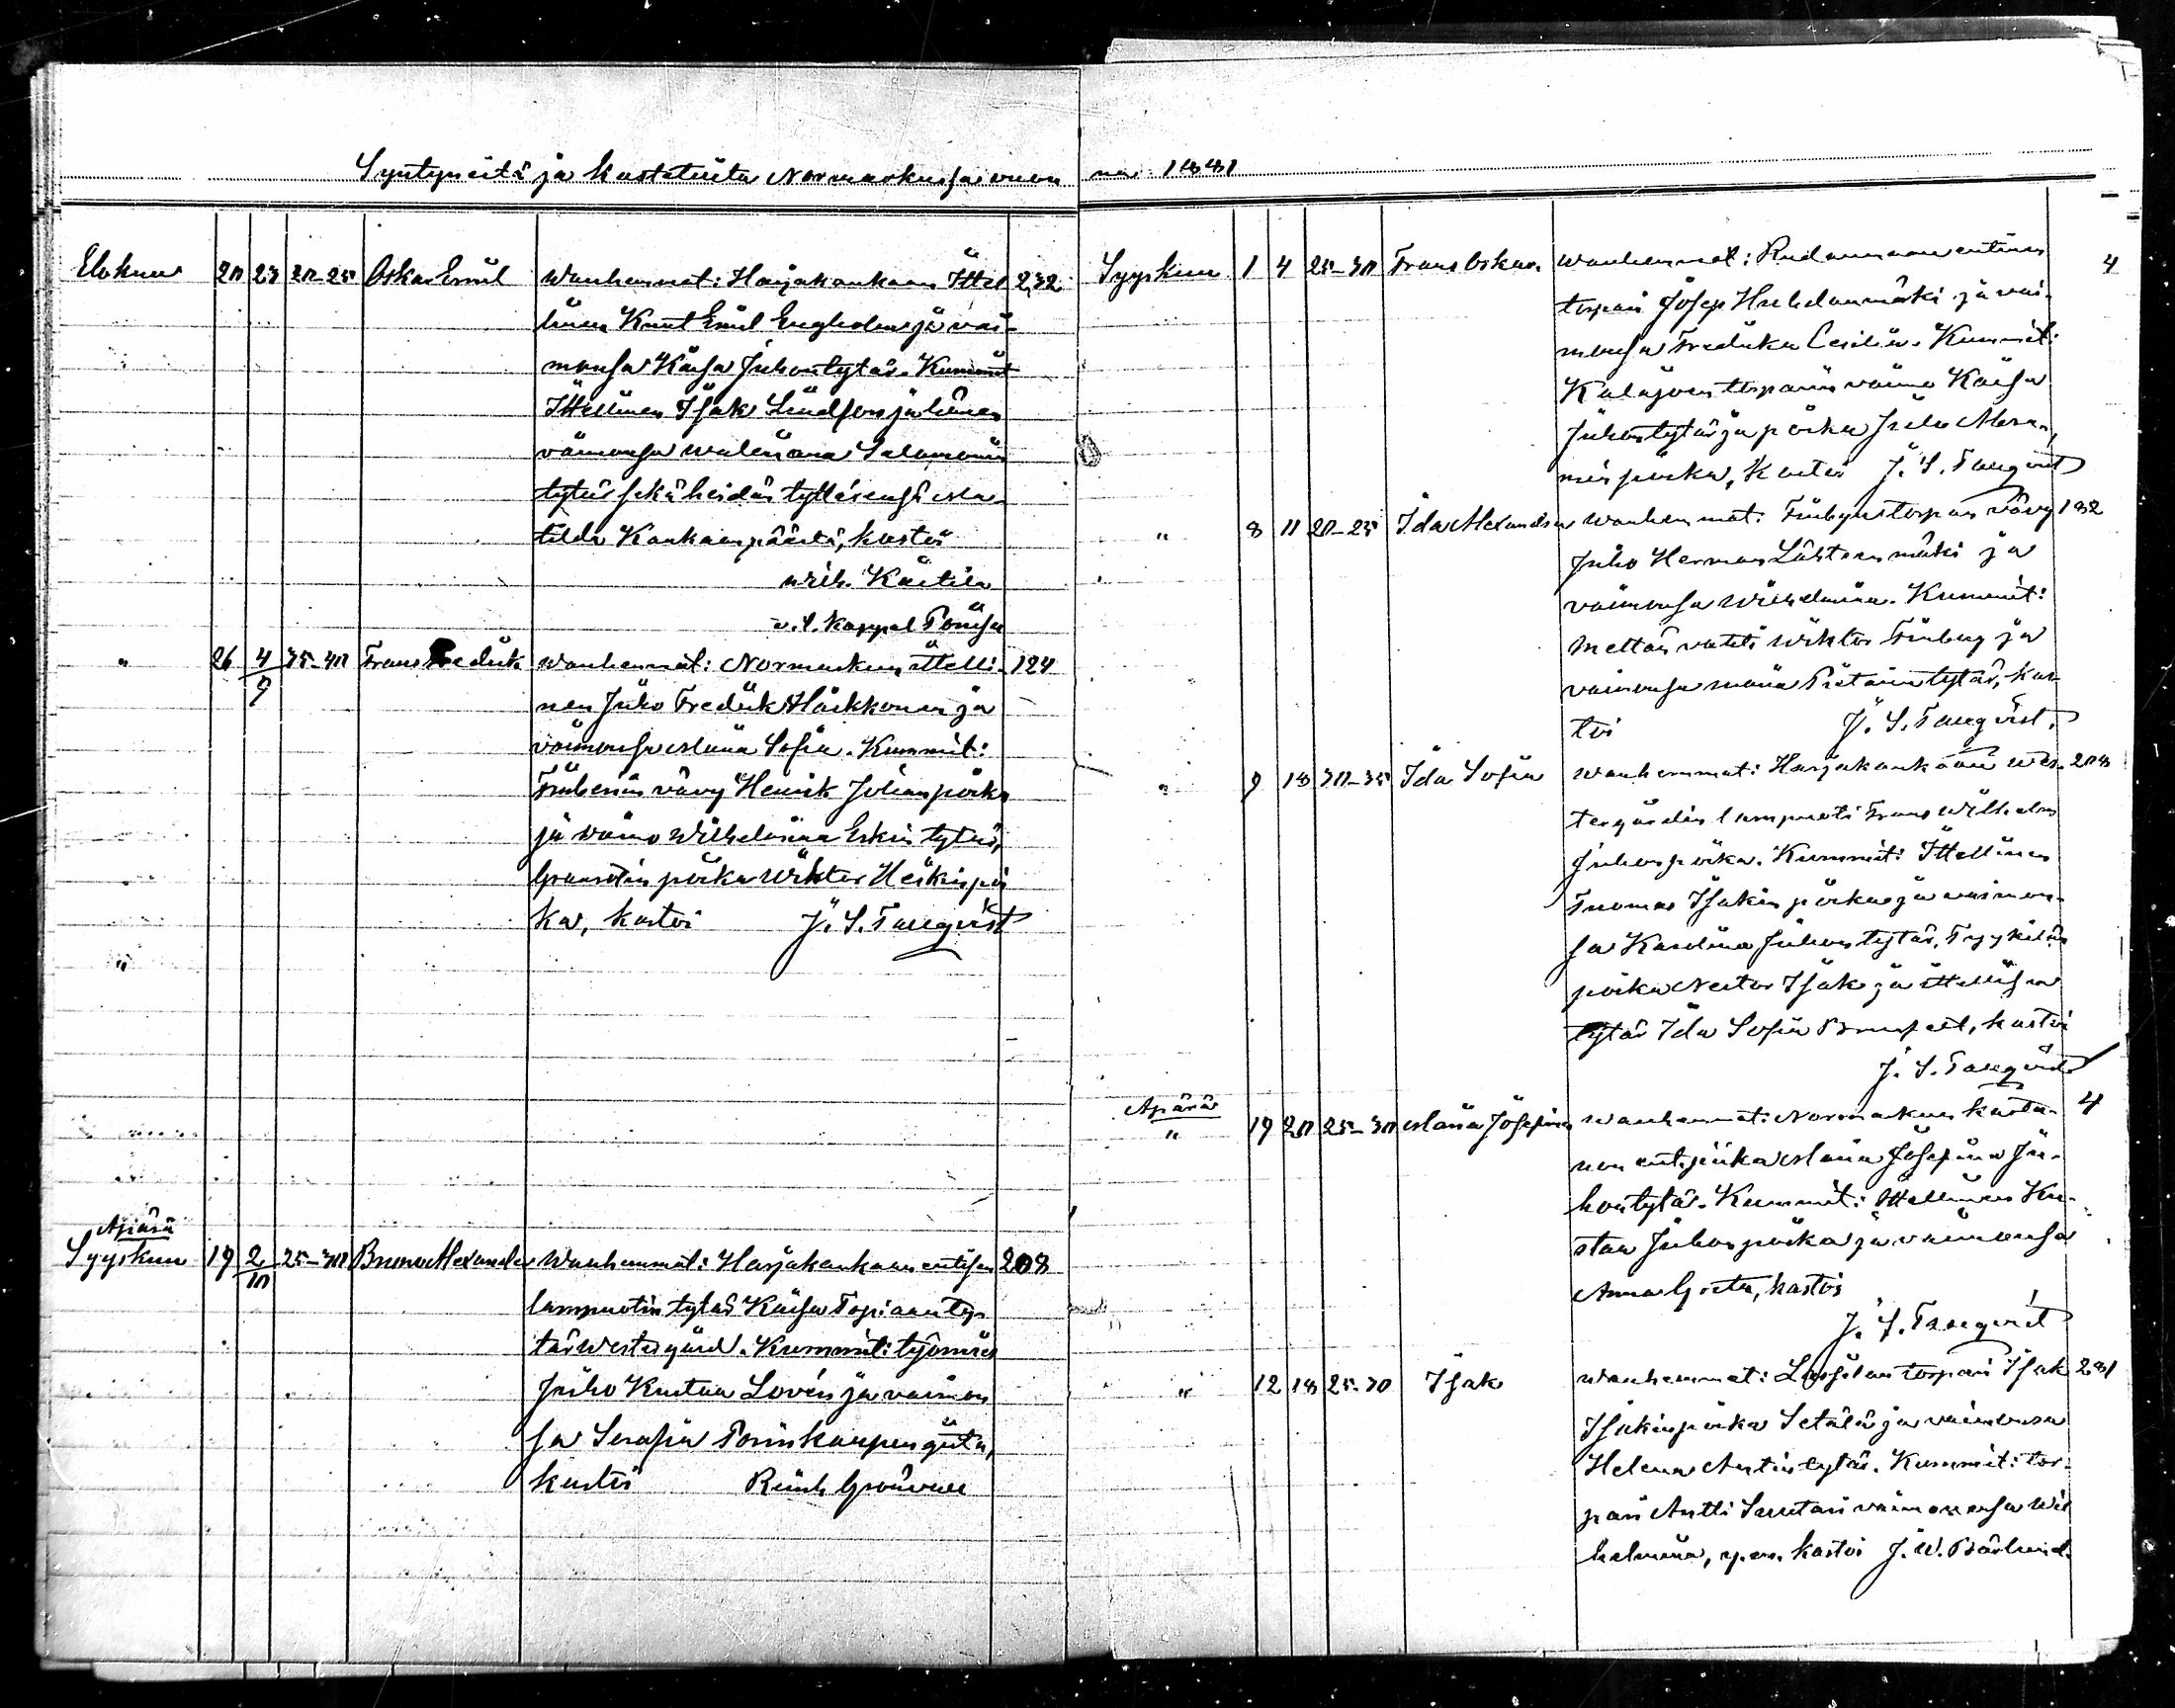 Syntyneitä ja kastetuita Normarkussa vuon
na 1881
Elokuu 20 23 20-25 Oskar Emil Wanhemmat: Harjakankaan Ittel 232
linen Knut Emil Engholm ja vai-
monsa Kaisa Juhontytär. Kummit
Ittellinen Isak Lindfors ja hänen
vaimonsa Walériana Salomonin
tytär sekä heidän tyttärensä Ma-
tilda Kankaanpäästä, kastoi
Wilh. Kärtila
v.t. kappal Porissa
" 26 4/9 35-40 Frans Fredrik Wanhemmat: Normarkun ittelli- 124
nen Juho Fredrik Häkkönen ja
vaimonsa Maria Sofia. Kummit:
Friberin vävy Henrik Johanpoika
ja vaimo Wilhelmina Eskintytär,
Granrotin poika Wihtor Heikinpoi
ka, kastoi J. S. Tauqvist
"
Äpärä
Syyskuu 19 2/10 25-30 Bruno Alexander Wanhemmat: Harjakankaan entisen 208
lampuotin tytär Kaisa Topiaanty-
tär Westergård. Kummit: työmies
Juho Kustaa Lovén ja vaimon
sa Serafia Porinkaupungista,
kastoi Rinh Grönvall
Syyskuu 1 4 25-30 Frans Oskar Wanhemmat: Rudanmaan entinen 4
torpari Josep Huhdanmäki ja vai-
monsa Fredrika Cecilia. Kummit:
Kalajoen torparin vaimo Kaisa
Juhontytär ja poika Juho
poika, Kastoi J. S. Tauqvist
" 8 11 20-25 Ida Alexandra Wanhemmat: Finbyn torpan vävy 132
Juho Herman Lähteenmäki ja
vaimonsa Wilhelmina. Kummit:
Mettän vahti Wihtor Friberg ja
vaimonsa Maria tytär, kas
toi J. S. Tauqvist.
" 9 18 30-35 Ida Sofia Wanhemmat: Harjakankaan Wes- 208
tergårdin lampuoti Frans Wilhelm
Juhonpoika. Kummit: Ittellinen
Tuomas Isakinpoika ja vaimon-
sa Karolina Juhontytär, Tyykilän
poika Nestor Isak ja ittellisen
tytär Ida Sofia kastoi
J. S. Tauqvist
Äpärä
" 19 20 25-30 Maria Josefina Wanhemmat: Normarkun kasta- 4
non ent. piika Maria Josefina Ju-
hontytär. Kummit: Ittellinen Ku-
staa Juhonpoika ja vaimonsa
Anna Greta, kastoi
J. S. Tauqvist
" 12 18 25-30 Isak Wanhemmat: Lassilan torpari Isak 281
Isakinpoika Setälä ja vaimonsa
Helena Antintytär. Kummit: tor-
pari Antti Santari vaimonensa Wil
helmina, kastoi J. W. Bärlund.